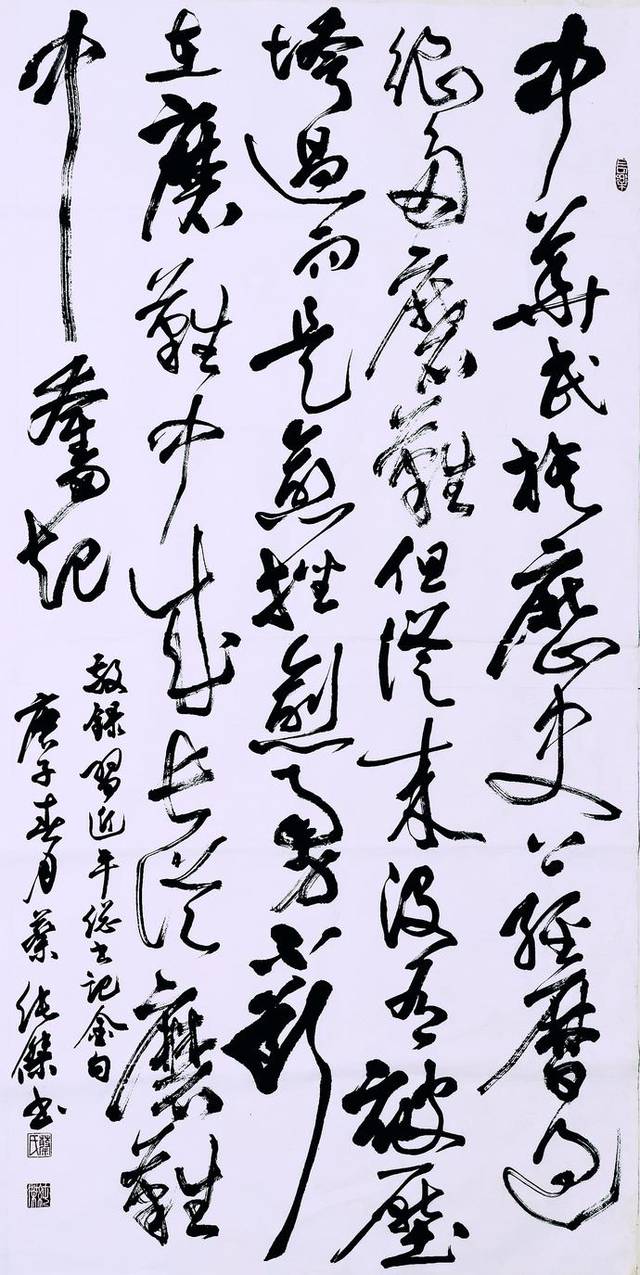 中華民族歷史上經曆過
很多磨難但從來沒有被壓
垮過而是愈挫愈勇不斷
在磨難中成長從磨難
中奮起
敬錄習近平總书記金句
庚子春月蔡傑书